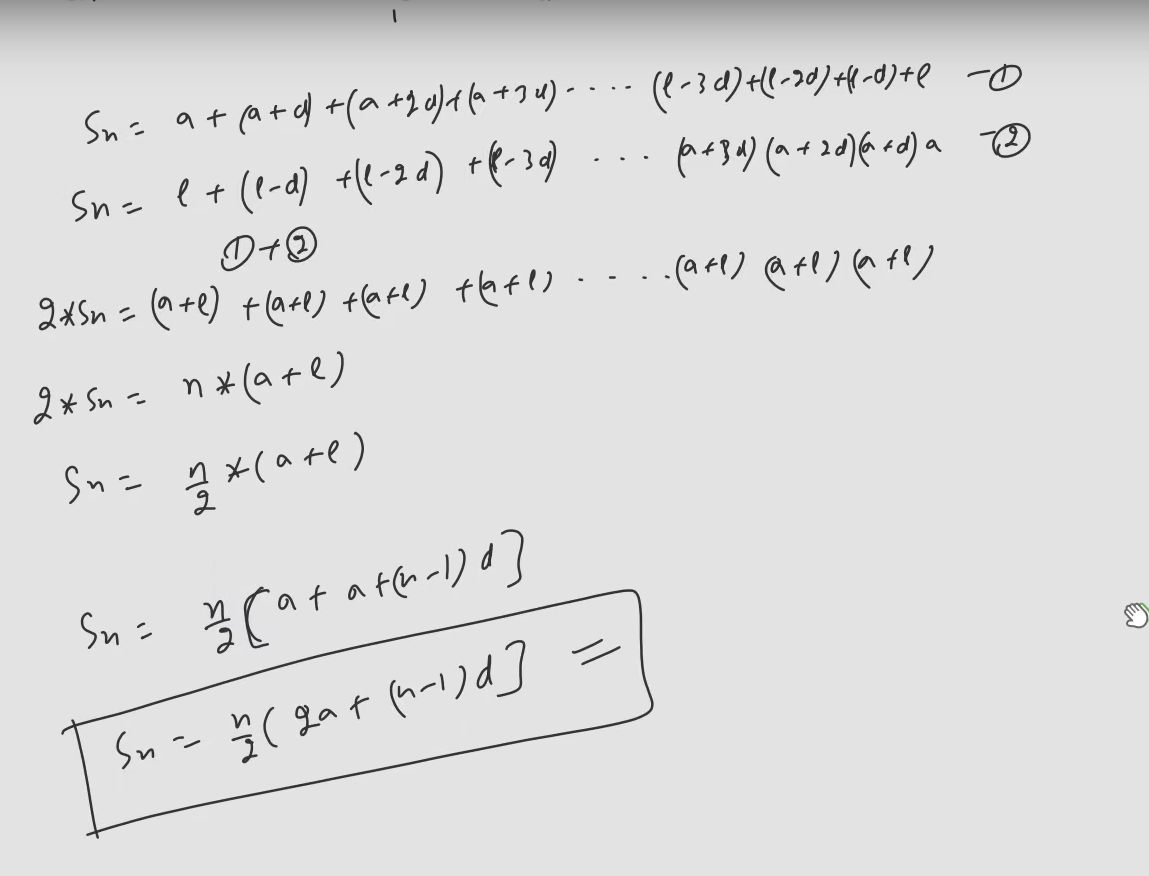 Sn = a + (a+d) + (a+2d) + (a+3d) - . . . . (l-3d)+(l-2d)+(l-d)+l -①
Sn = l + (l-d) + (l-2d) + (l-3d) . . . . (a+3d) (a+2d)(a+d) a -②
①+②
2*Sn = (a+l) + (a+l) + (a+l) + (a+l) . - . . . (a+l) (a+l) (a+l)
2*Sn = n*(a+l)
Sn = n/2 *(a+l)
Sn = n/2 [a + a+(n-1)d]
Sn = n/2 ( 2a + (n-1)d] =